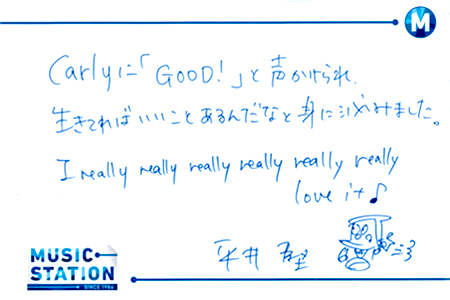 M
Carlyに「GOOD!」と声かけられ
生きてればいいことあるんだなと身にしみました。
I really really really really really really
love it♪
平井 堅
MUSIC
STATION
SINCE 1986